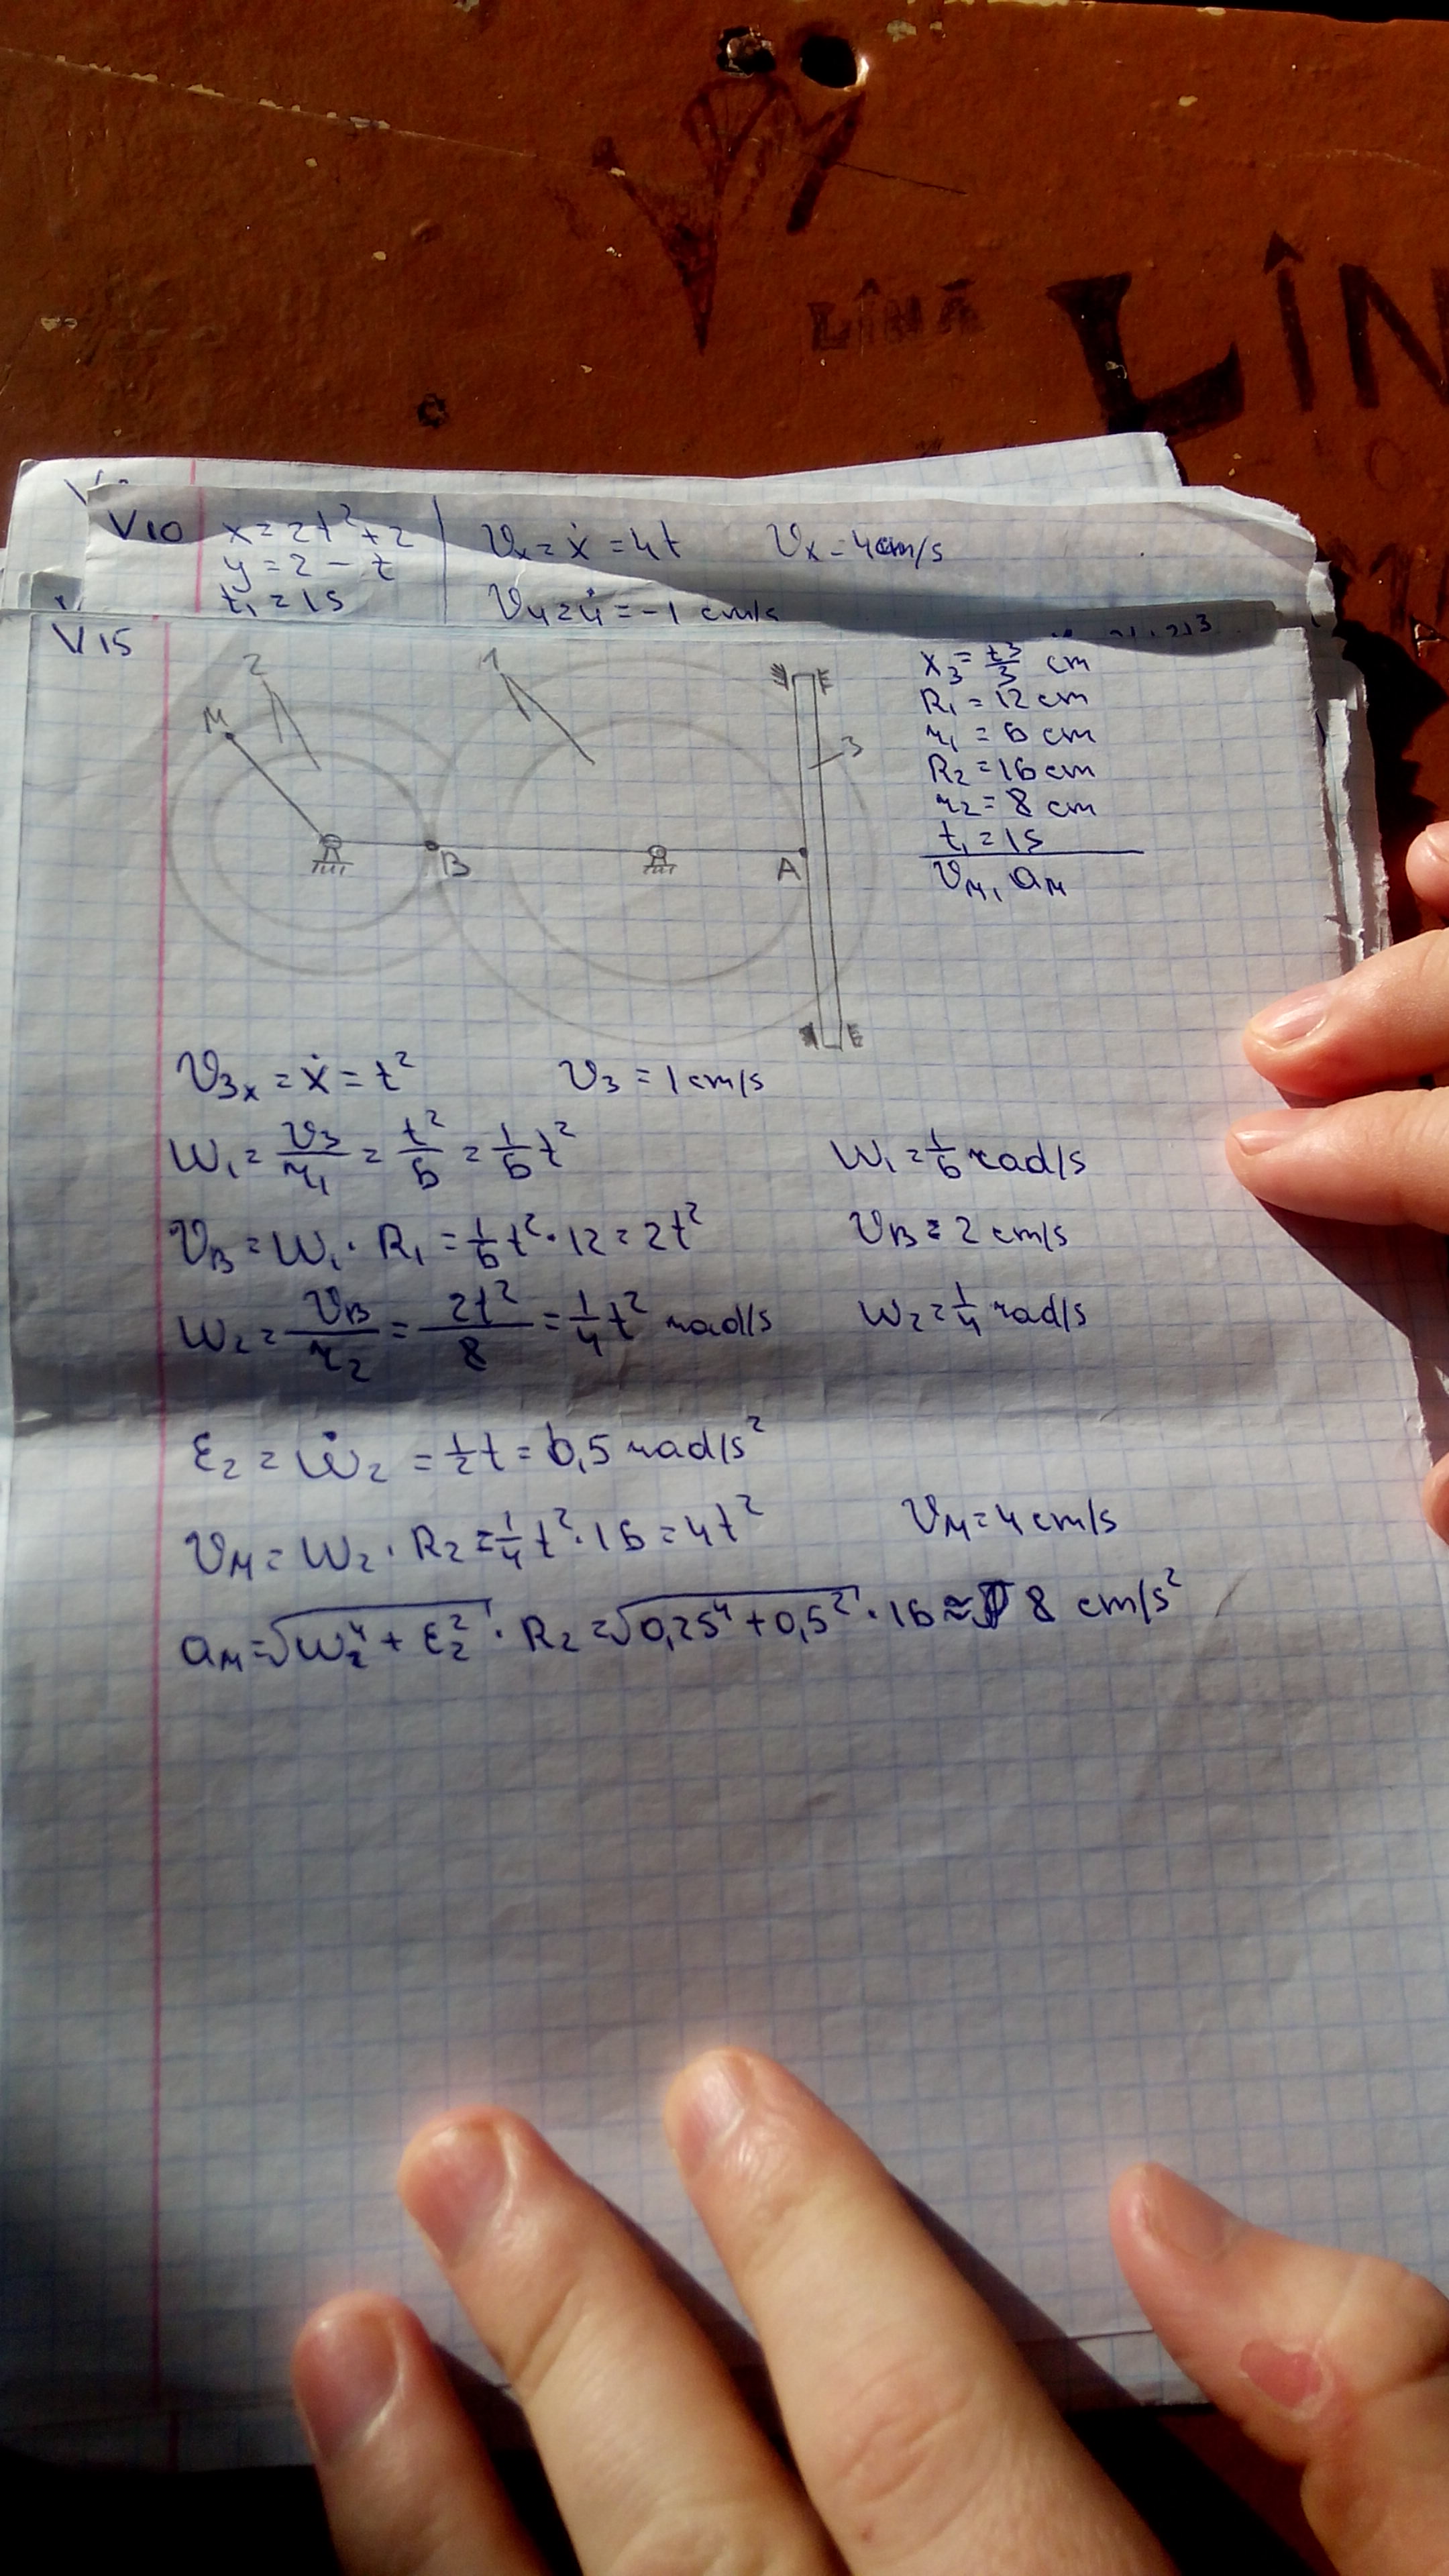 LÎNĂ
LÎN
V10
x = 2t² + 2
y = 2 - t
t₁ = 1s
Vx = ẋ = 4t Vx = 4cm/s
Vy = ẏ = -1 cm/s
V15
2
1
M
3
B
A
x₃ = t³/3 cm
R₁ = 12 cm
r₁ = 6 cm
R₂ = 16 cm
r₂ = 8 cm
t₁ = 1s
V_M, a_M
V₃ₓ = ẋ = t² V₃ = 1 cm/s
W₁ = V₃/r₁ = t²/6 = 1/6 t² W₁ = 1/6 rad/s
V_B = W₁ · R₁ = 1/6 t² · 12 = 2t² V_B = 2 cm/s
W₂ = V_B/r₂ = 2t²/8 = 1/4 t² rad/s W₂ = 1/4 rad/s
ε₂ = ẇ₂ = 1/2 t = 0,5 rad/s²
V_M = W₂ · R₂ = 1/4 t² · 16 = 4t² V_M = 4 cm/s
a_M = √(W₂⁴ + ε₂²) · R₂ = √(0,25⁴ + 0,5²) · 16 ≈ 8 cm/s²